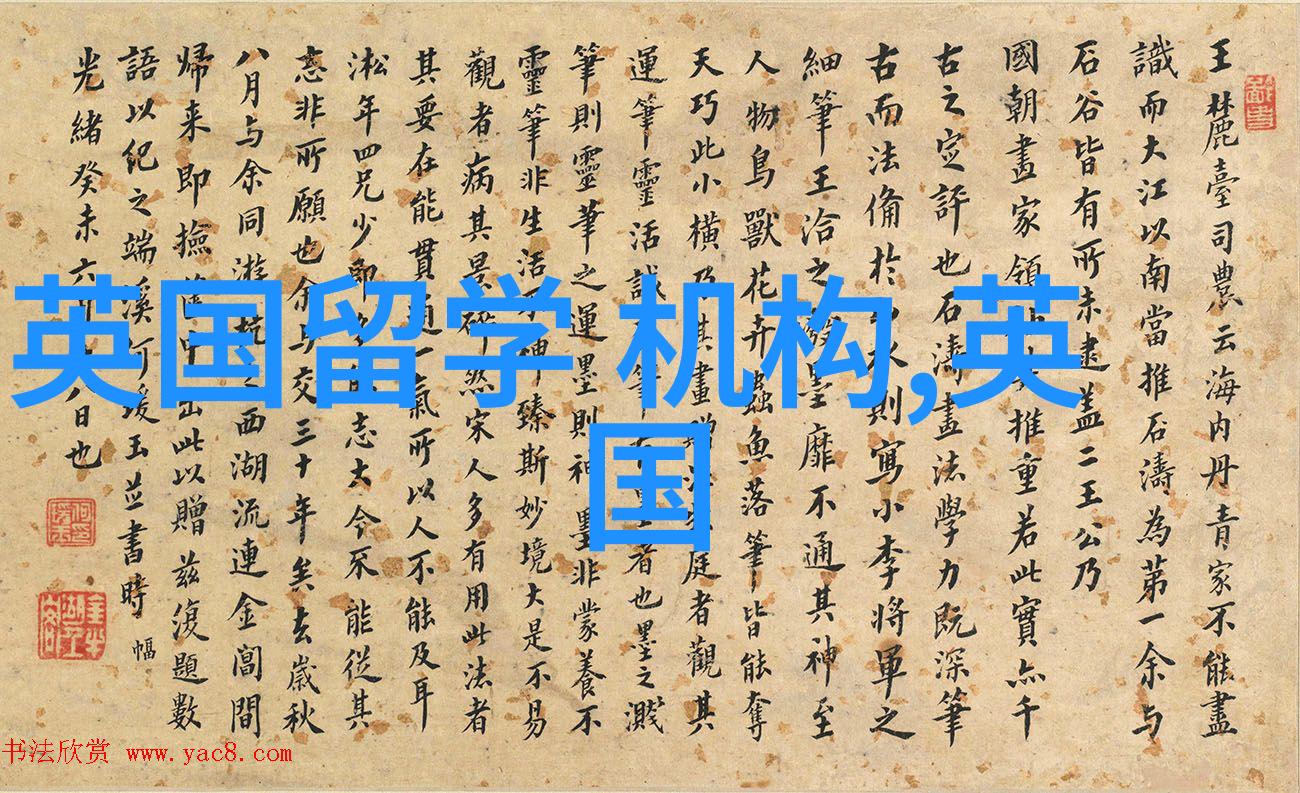 英国留学 机构,英
国
王麓臺司農云海内丹青家不能盡
識而大江以南當推石濤為第一余与
石谷皆有所未逮盖二王公乃
國朝畫家領推重若此實亦千
古之定評也石濤畫法學力既深筆
古而法備於則寫小李將軍之
細筆王洽之墨靡不通其神至
人物鳥獸花卉蟲魚落筆皆能奪
天巧此小橫乃其畫庭者觀其
運筆靈活誠者也墨之濺
筆則靈筆之運墨則神墨非蒙養不
靈筆非生活不神臻斯妙境大是不易
觀者病其景碎然宋人多有用此法者
其要在能貫通一氣所以人不能及耳
淞年四兄少志古今不能從其
志非所願也余与交三十年矣去歲秋
八月与余同遊西湖流連金閶間
歸来即撿中出此以贈兹復題數
語以纪之端溪何瑗玉並書時
光緒癸未六日也
幅
书法欣赏 www.yac8.com